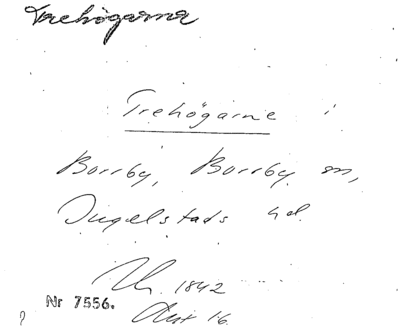 Trehögarna
Trehögarne i
Borrby, Borrby sn,
Ingelstads hd.
1842
Nr 7556.
Akt 16.